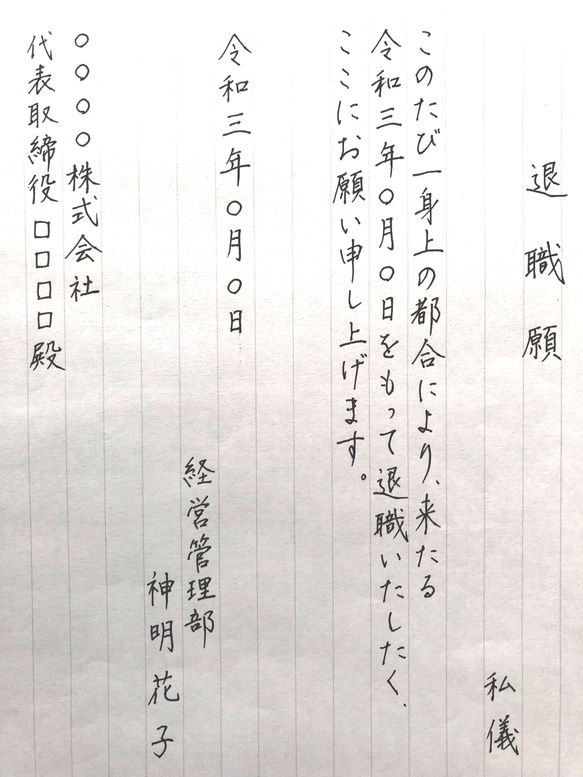 退職願
私儀
このたび一身上の都合により、来たる
令和三年〇月〇日をもって退職いたしたく、
ここにお願い申し上げます。
令和三年〇月〇日
経営管理部
神明花子
〇〇〇〇株式会社
代表取締役□□□□殿